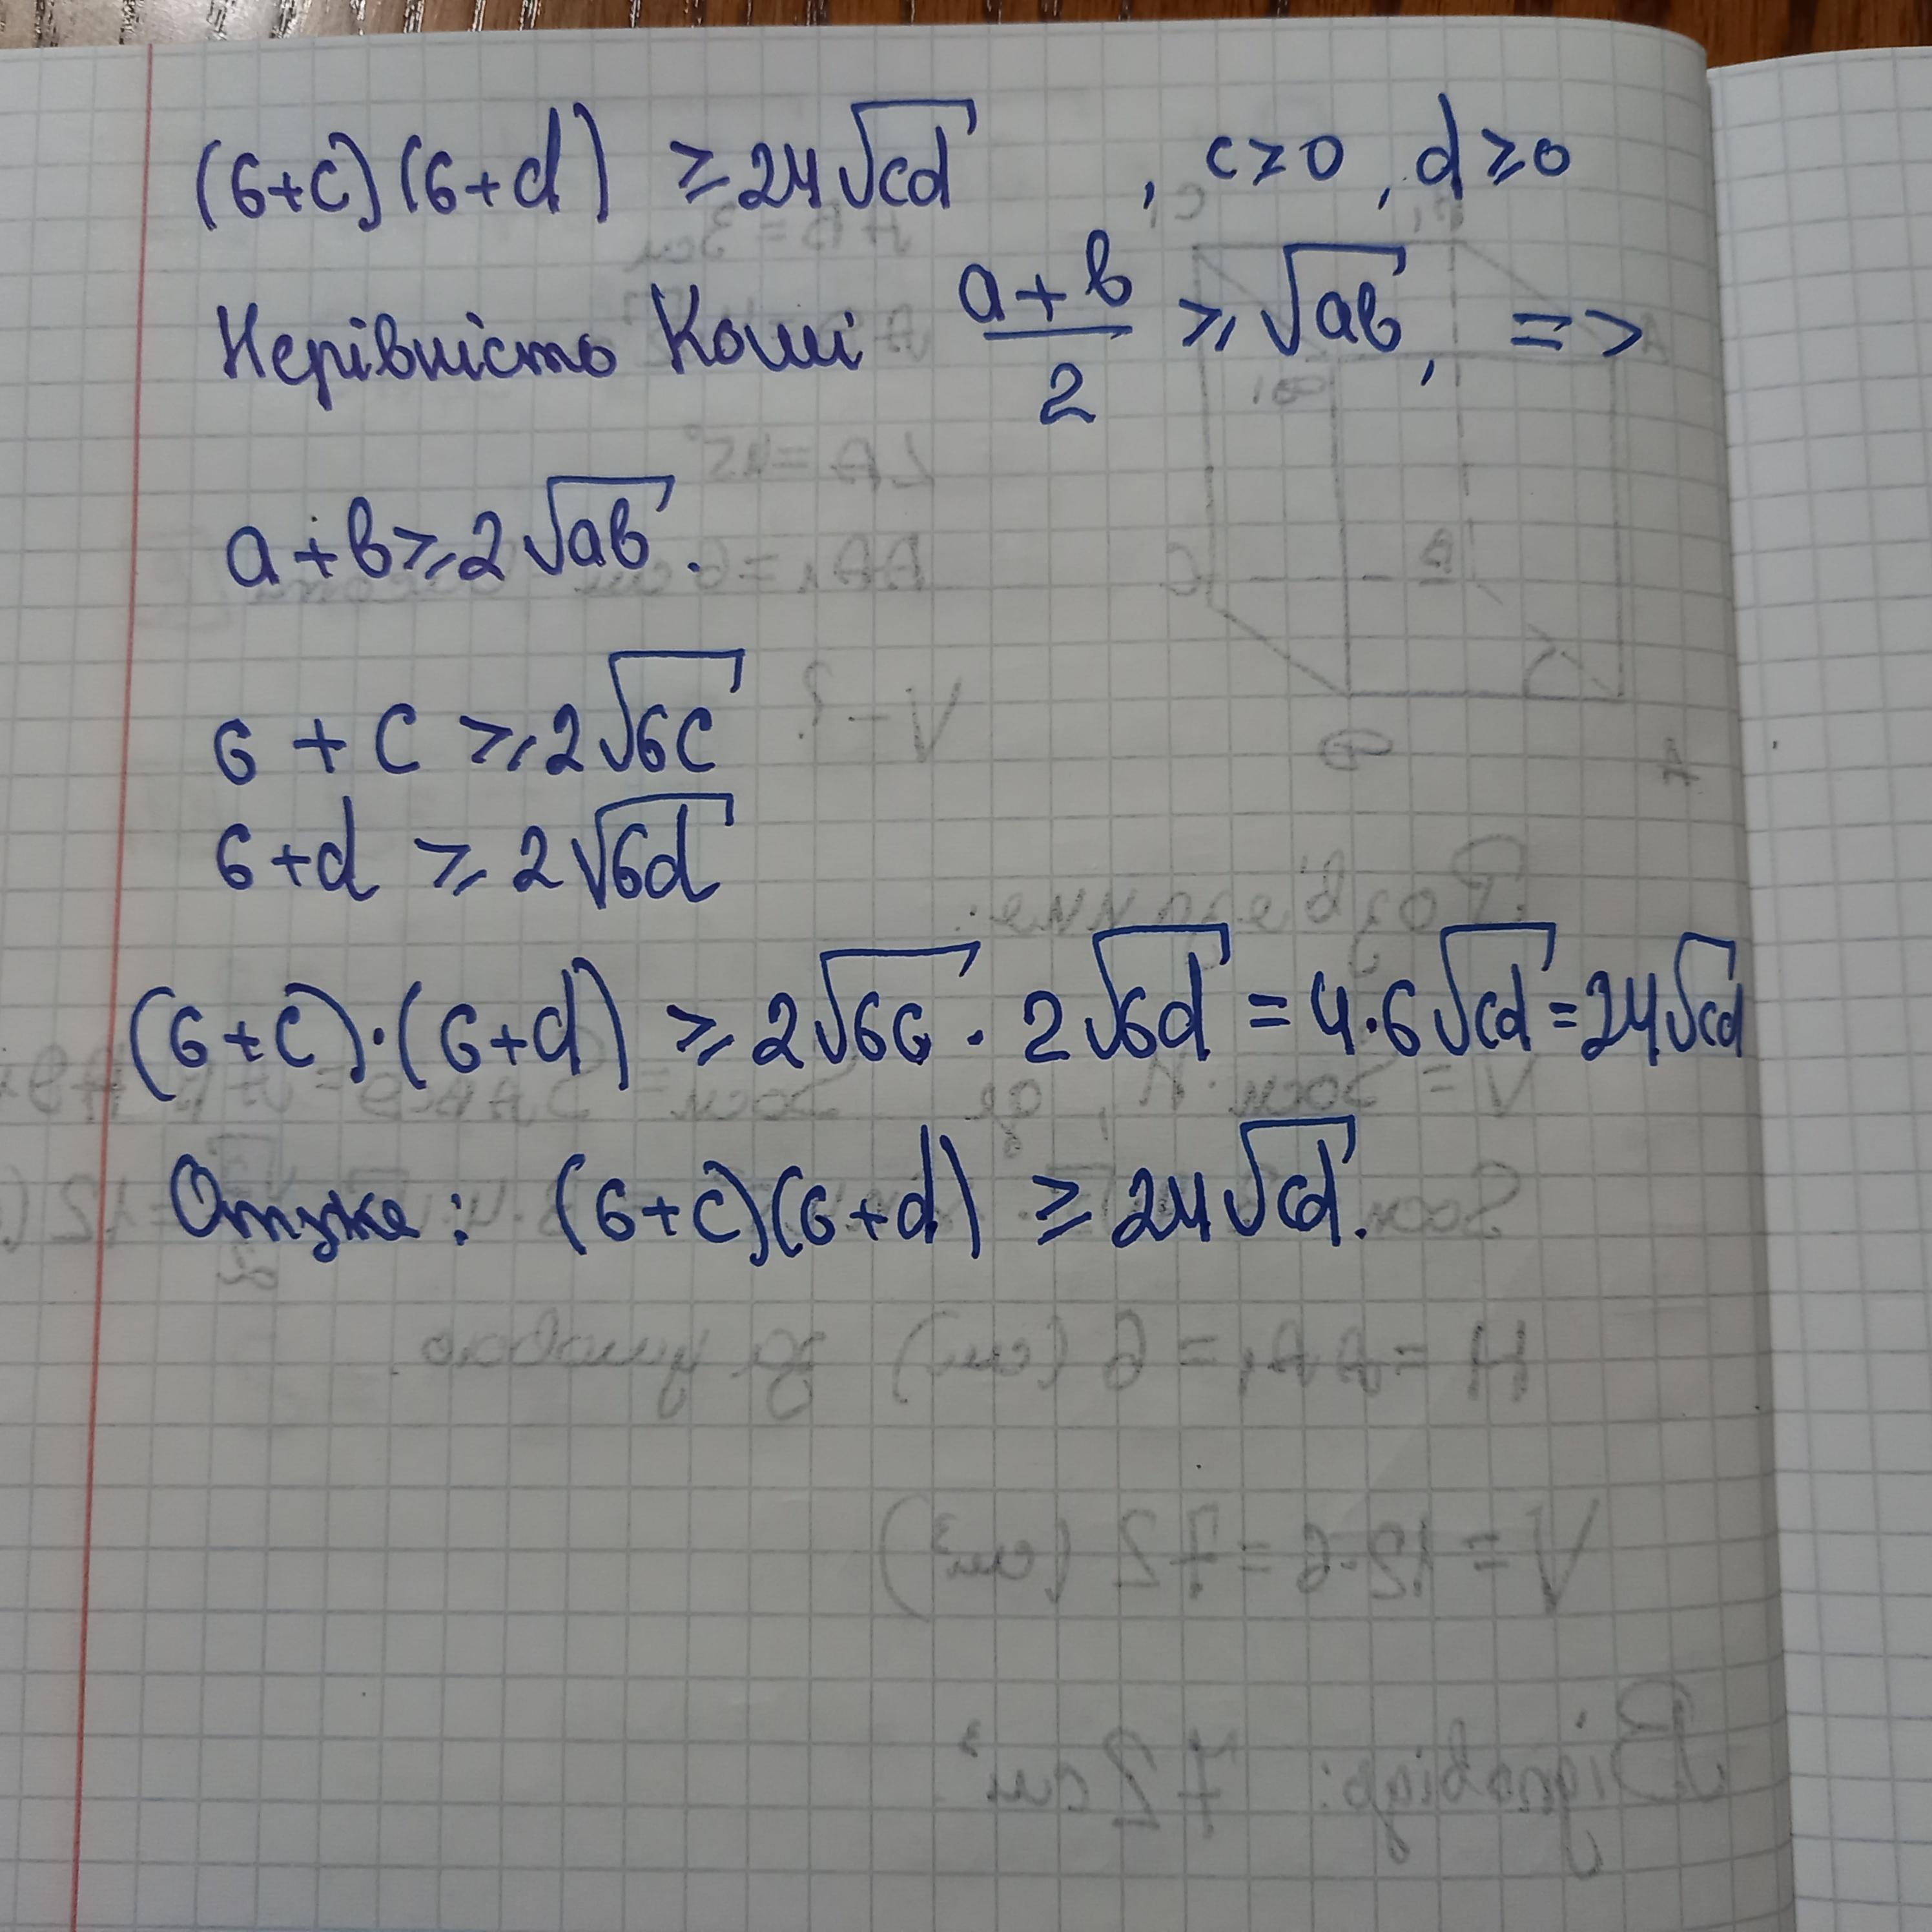 (6+c)(6+d) ≥ 24√cd , c≥0, d≥0
Нерівність Коші (a+b)/2 ≥ √ab, =>
a+b≥2√ab.
6 + c ≥ 2√6c
6+d ≥ 2√6d
(6+c)·(6+d) ≥ 2√6c · 2√6d = 4·6√cd = 24√cd
Отже: (6+c)(6+d) ≥ 24√cd.